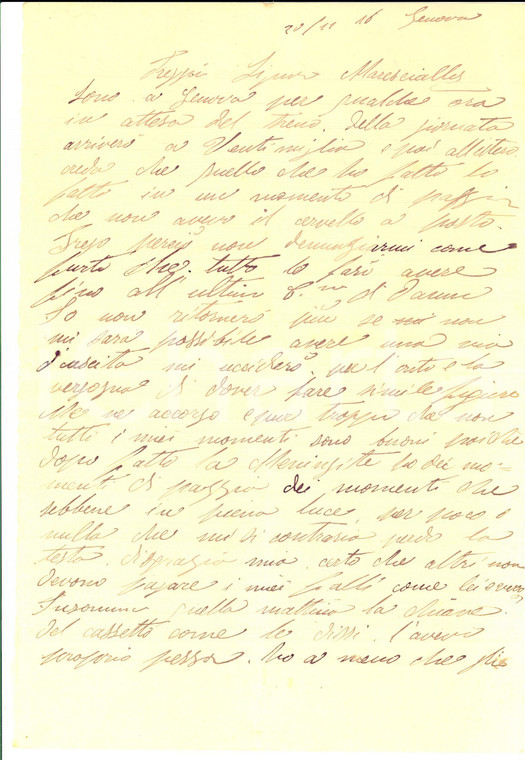 20/11 16 Genova
Signor Maresciallo
Sono a Genova per qualche ora
in attesa del treno. Della giornata
arriverò a Ventimiglia e poi all'estero
credo che quello che ho fatto lo
fatto in un momento di pazzia
che non avevo il cervello a posto.
perciò non denunziarmi come
furto che tutto le farò avere
fino all'ultimo di
Io non ritornerò più se non
mi sarà possibile avere una mia
riuscita mi ucciderò per l'onta e la
vergogna di dover fare simile figura
Me ne accorgo pure troppo che non
tutti i miei momenti sono buoni poiché
dopo fatto la Meningite ho dei mo-
menti di pazzia dei momenti che
sebbene in piena luce, per poco o
nulla che mi si contraria perdo la
testa. disgrazia mia. certo che altri non
devono pagare i miei falli come
Insomma quella mattina la chiave
del cassetto come le dissi. l'avevo
proprio persa. ho a meno che